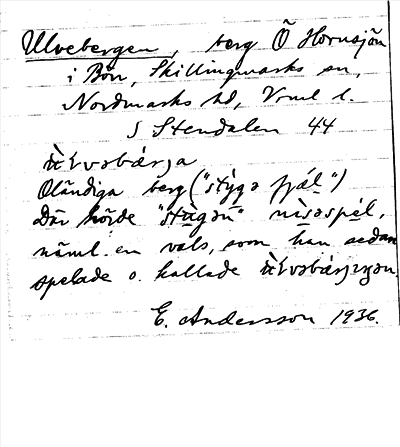 Ulvebergen, berg Ö Hornsjön
i Bön, Skillingmarks sn,
Nordmarks hd, Vrml l.
S Stendalen 44
Oländiga berg ("stýgə fjäl̄")
där hörde "stùgən" nìsəspél,
näml. en vals, som han sedan
spelade o. kallade
E. Andersson 1936.